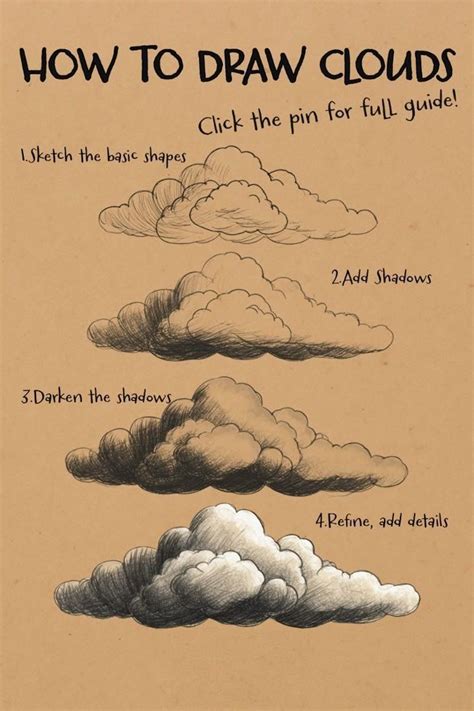 HOW TO DRAW CLOUDS
Click the pin for full guide!
1.Sketch the basic shapes
2.Add Shadows
3.Darken the shadows
4.Refine, add details